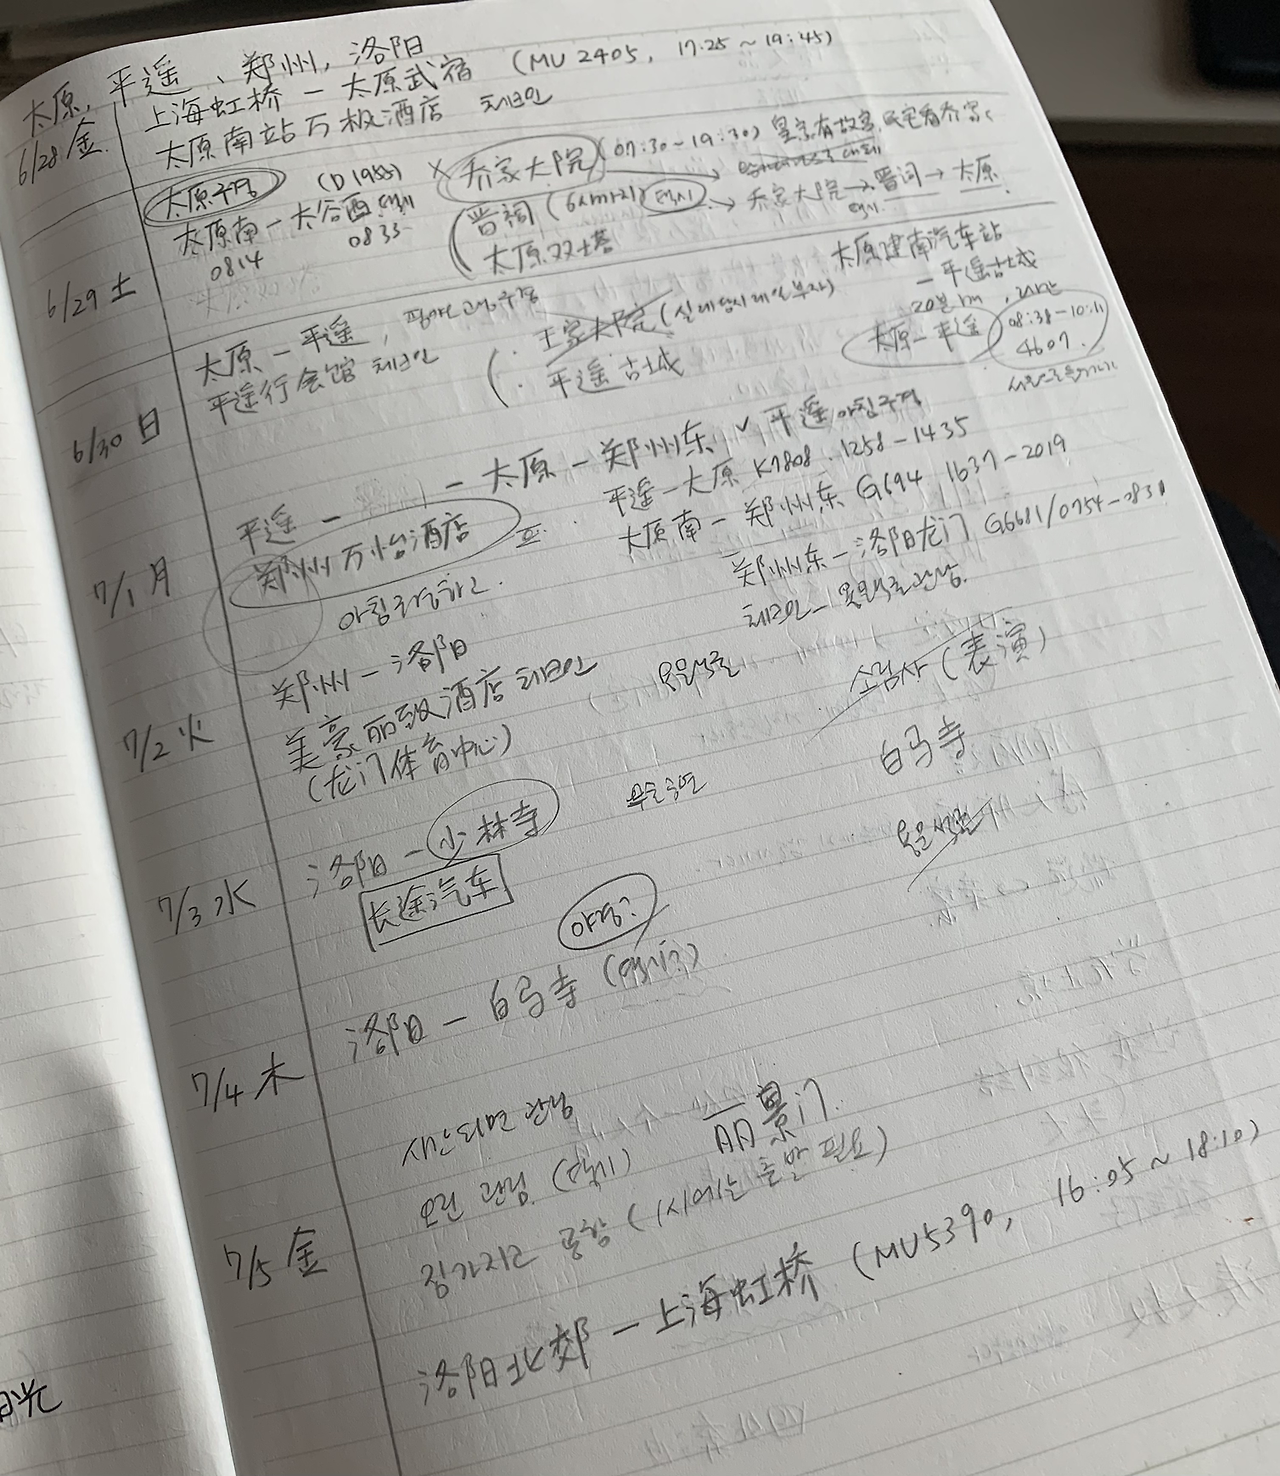 太原, 平遥, 郑州, 洛阳
6/28 金 上海虹桥 - 太原武宿 (MU 2405, 17:25 ~ 19:45)
太原南站万枫酒店 체크인
6/29 土 太原구경 (D1955) × 乔家大院 (07:30~19:30) 皇家有故宫, 民宅看乔家
太原南 - 太谷西 택시
0814 0835
晋祠 택시 → 乔家大院 → 晋词 → 太原
택시
太原双塔
6/30 日 太原 - 平遥, 핑야오고성구경
平遥行会馆 체크인
王家大院
平遥古城
太原建南汽车站
- 平遥古城
太原 - 平遥 08:38-10:11
4607.
7/1 月 平遥 - - 太原 - 郑州东 ✓ 平遥 아침구경
平遥 - 太原 K7808, 1258-1435
太原南 - 郑州东 G694 1637-2019
郑州万怡酒店
아침
7/2 火 郑州 - 洛阳 郑州东 - 洛阳龙门 G6681/0754-0831
美豪丽致酒店 체크인 용문석굴
체크인 - 용문석굴 관람.
(龙门体育中心)
소림사 (表演)
白马寺
용문석굴
7/3 水 洛阳 - 少林寺
长途汽车
야경?
7/4 木 洛阳 - 白马寺
7/5 金
오전 관람 (택시) 丽景门.
짐가지고 공항 (1시에는 출발 필요)
洛阳北郊 - 上海虹桥 (MU5390, 16:05 ~ 18:10)